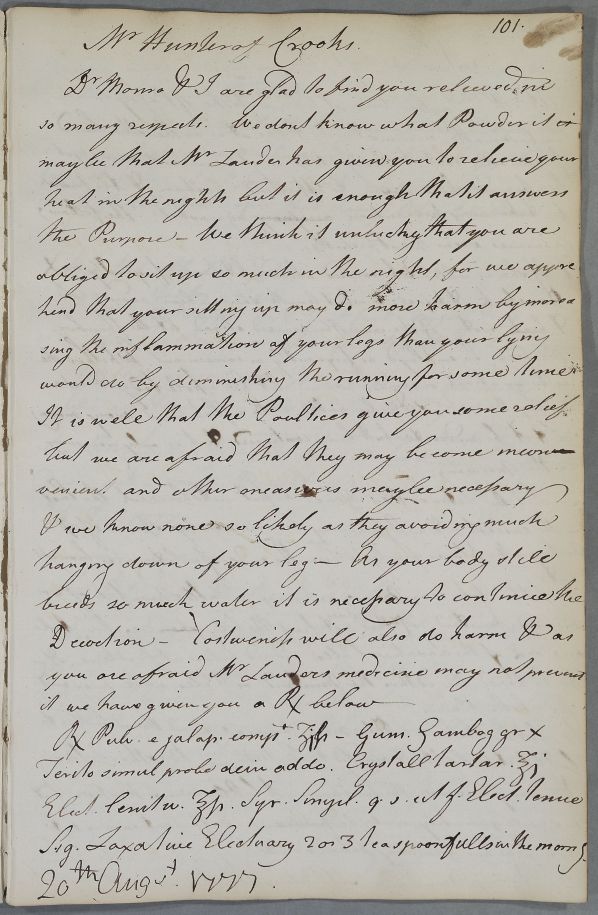 101.
Mr Hunter of Crooks.
Dr Monro & I are glad to find you relieved in
so many respects. We dont know what Powder it is
maybe that Mr Lauder has given you to relieve your
heat in the nights but it is enough that it answers
the Purpose - We think it unlucky that you are
obliged to sit up so much in the night, for we appre
hend that your sitting up may do more harm by increa
sing the inflammation of your legs than your lying
would do by diminishing the running for some time
It is well that the Poultices give you some relief
but we are afraid that they may become incon
venient. and other measures may be necessary
& we know none so likely as they avoiding much
hanging down of your leg - As your body still
breeds so much water it is necessary to continue the
Decoction - Costiveness will also do harm & as
you are afraid Mr Lauders medicine may not prevent
it we have given you a ℞ below
℞ Pulv. e jalap. compt. ʒiſs - Gum. Gambog gr x
Terito simul probe dein adde. Crystall tartar. ℥j
Elect. lenitiv. ℥ſs. Syr. Simpl. q. s. ut f. Elect. tenue
Sig. Laxative Electuary 2 or 3 teaspoonfulls in the morng
20th Augst. 1777.